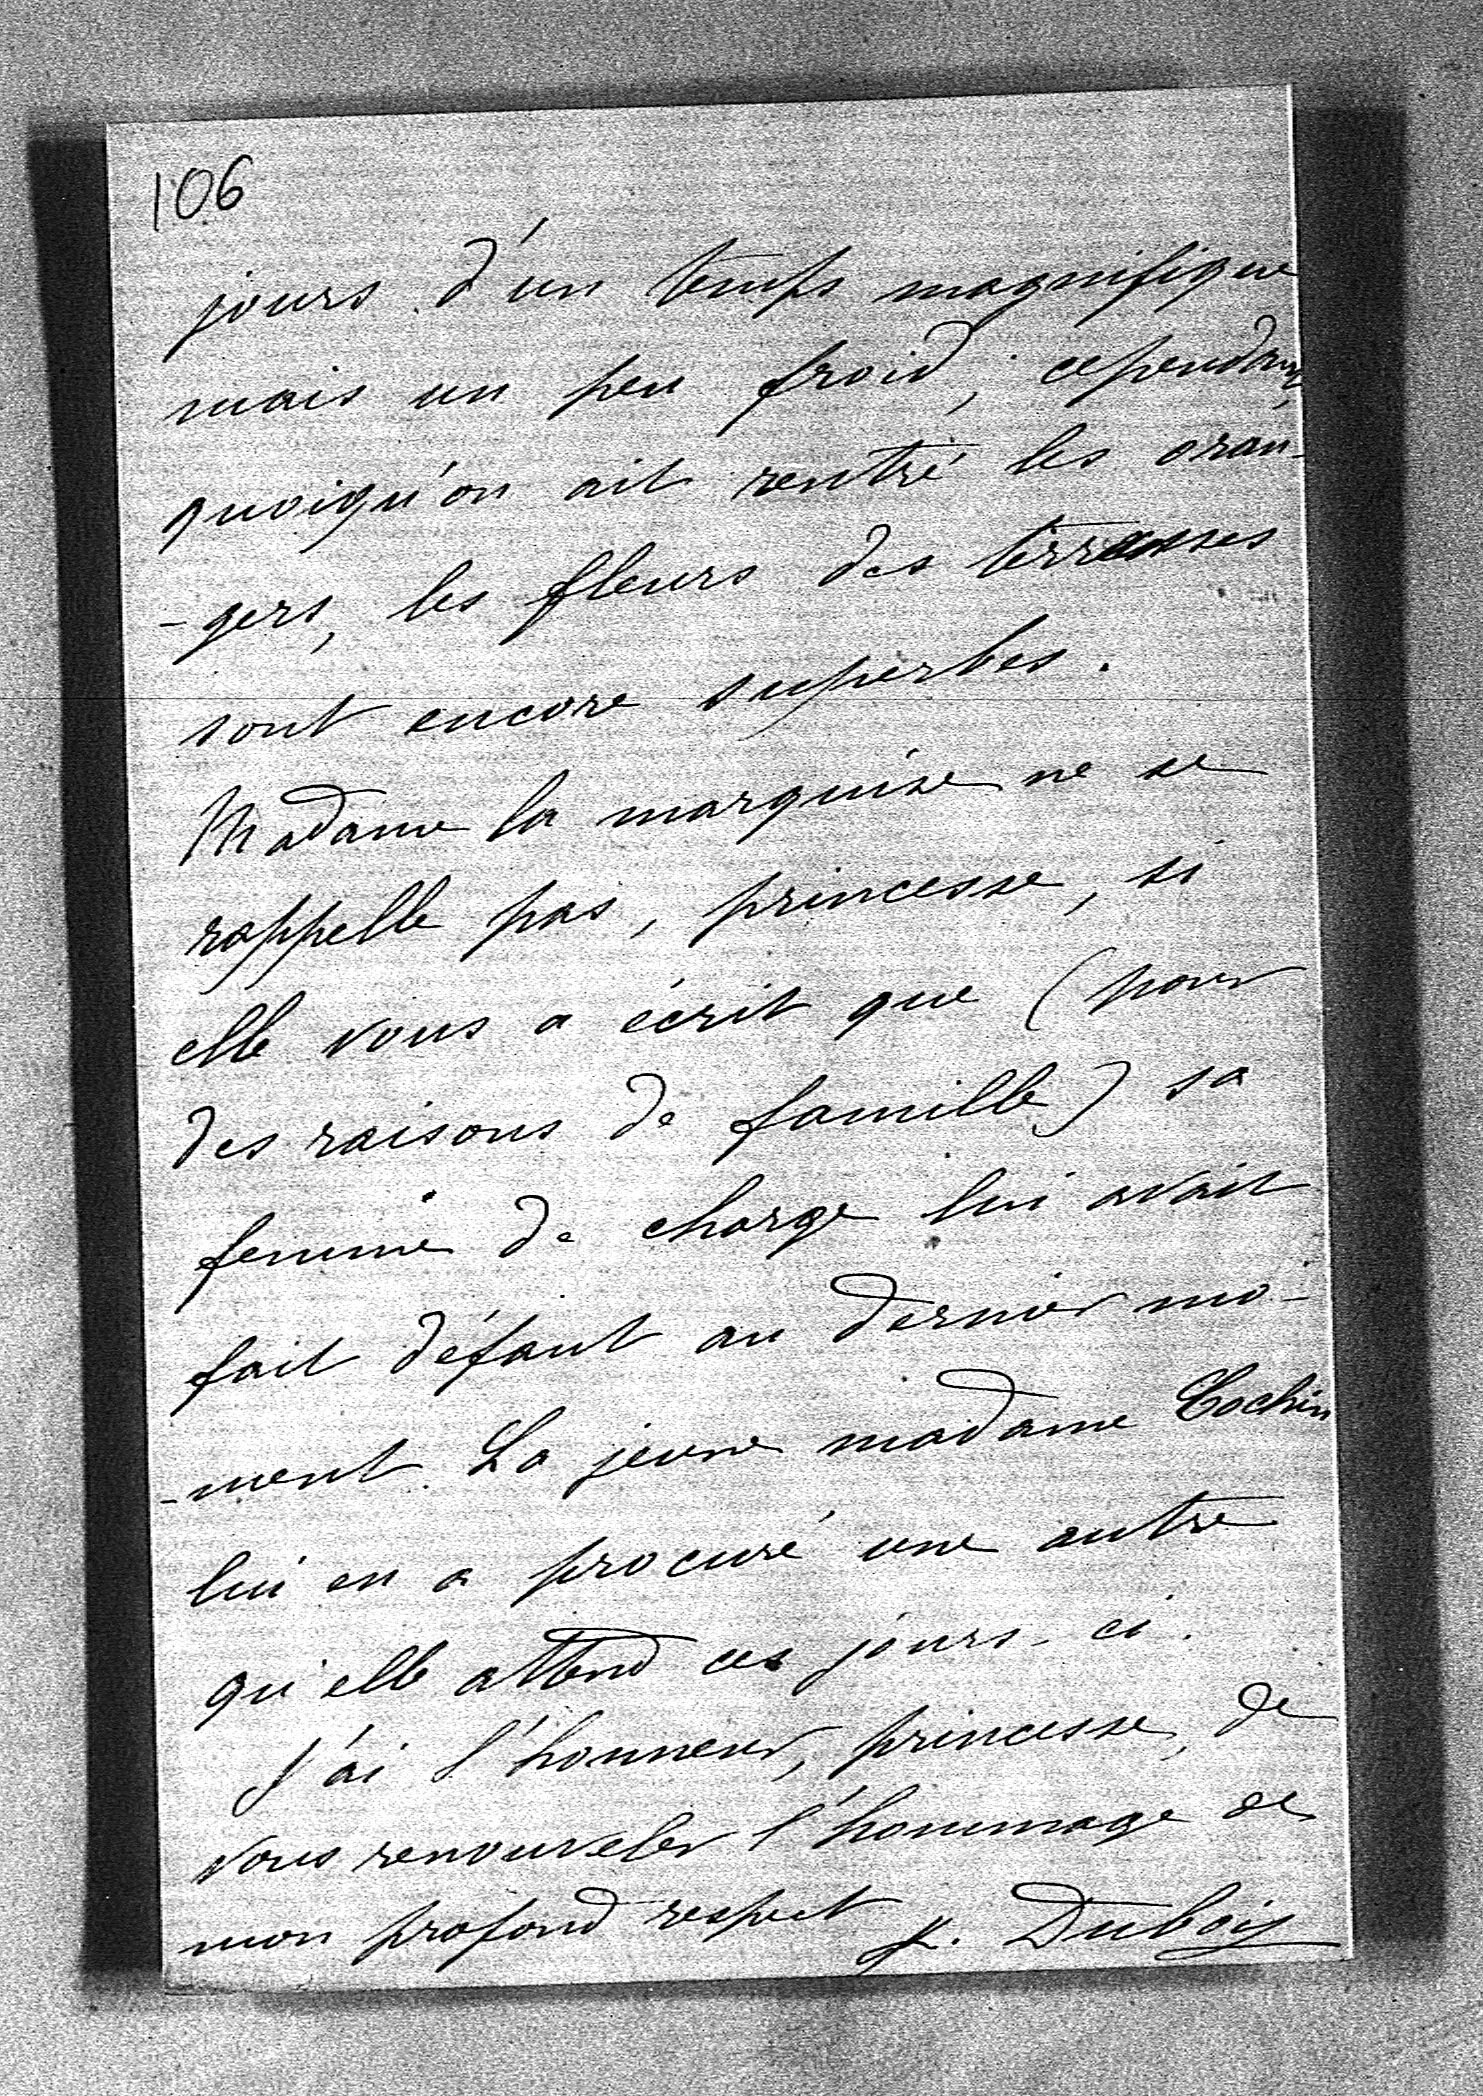 106
jours d'un temps magnifique
mais un peu froid, cependant,
quoiqu'on ait rentré les oran-
-gers, les fleurs des terrasses
sont encore superbes.
Madame la marquise ne se
rappelle pas, princesse, si
elle vous a écrit que (pour
des raisons de famille) sa
femme de charge lui avait
fait défaut au dernier mo-
-ment. La jeune madame Cochin
lui en a procuré une autre
qu'elle attend ces jours-ci.
J'ai l'honneur, princesse, de
vous renouveler l'hommage de
mon profond respect
Dubois